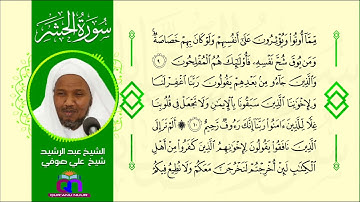 سورة الحشر
الشيخ عبد الرشيد
شيخ علي صوفي
مِّمَّآ أُوتُوا۟ وَيُؤْثِرُونَ عَلَىٰٓ أَنفُسِهِمْ وَلَوْ كَانَ بِهِمْ خَصَاصَةٌ
وَمَن يُوقَ شُحَّ نَفْسِهِۦ فَأُو۟لَٰٓئِكَ هُمُ ٱلْمُفْلِحُونَ ٩
وَٱلَّذِينَ جَآءُو مِنۢ بَعْدِهِمْ يَقُولُونَ رَبَّنَا ٱغْفِرْ لَنَا
وَلِإِخْوَٰنِنَا ٱلَّذِينَ سَبَقُونَا بِٱلْإِيمَٰنِ وَلَا تَجْعَلْ فِى قُلُوبِنَا
غِلًّا لِّلَّذِينَ ءَامَنُوا۟ رَبَّنَآ إِنَّكَ رَءُوفٌ رَّحِيمٌ ١٠ ۞ أَلَمْ تَرَ إِلَى
ٱلَّذِينَ نَافَقُوا۟ يَقُولُونَ لِإِخْوَٰنِهِمُ ٱلَّذِينَ كَفَرُوا۟ مِنْ أَهْلِ
ٱلْكِتَٰبِ لَئِنْ أُخْرِجْتُمْ لَنَخْرُجَنَّ مَعَكُمْ وَلَا نُطِيعُ فِيكُمْ